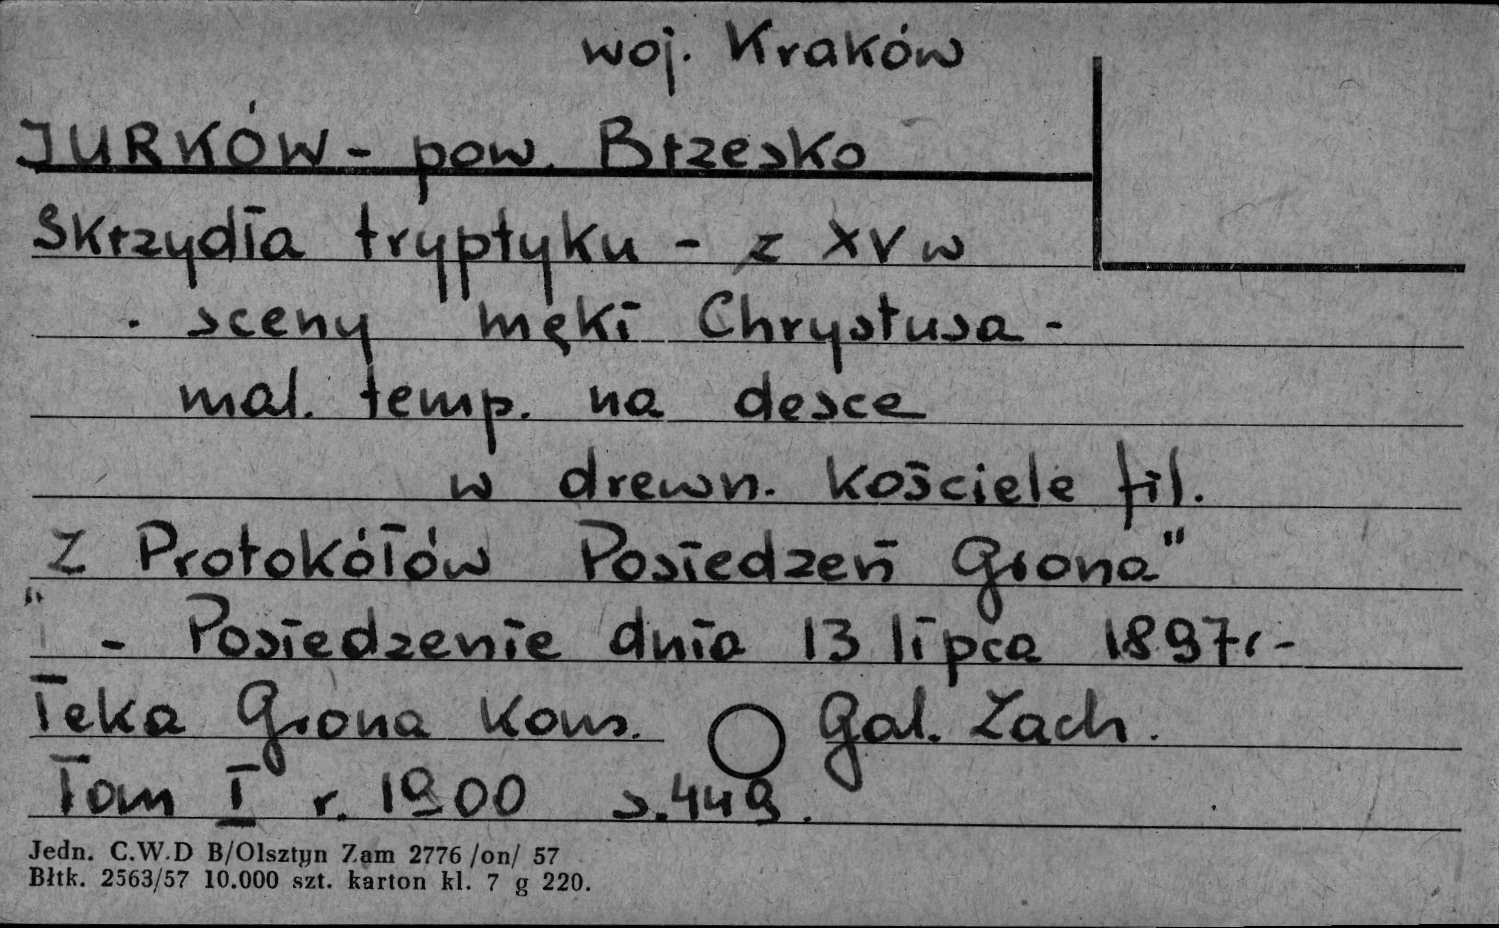 woj. Kraków
JURKÓW - pow. Brzesko
Skrzydła tryptyku - z XV w
. sceny męki Chrystusa -
mal. temp. na desce
w drewn. kościele fil.
Z Protokółów Posiedzeń Grona"
" - Posiedzenie dnia 13 lipca 1897r -
Teka Grona Kons. Gal. Zach.
Tom I r. 1900 s. 449.
Jedn. C.W.D B/Olsztyn Zam 2776 /on/ 57
Błtk. 2563/57 10.000 szt. karton kl. 7 g 220.